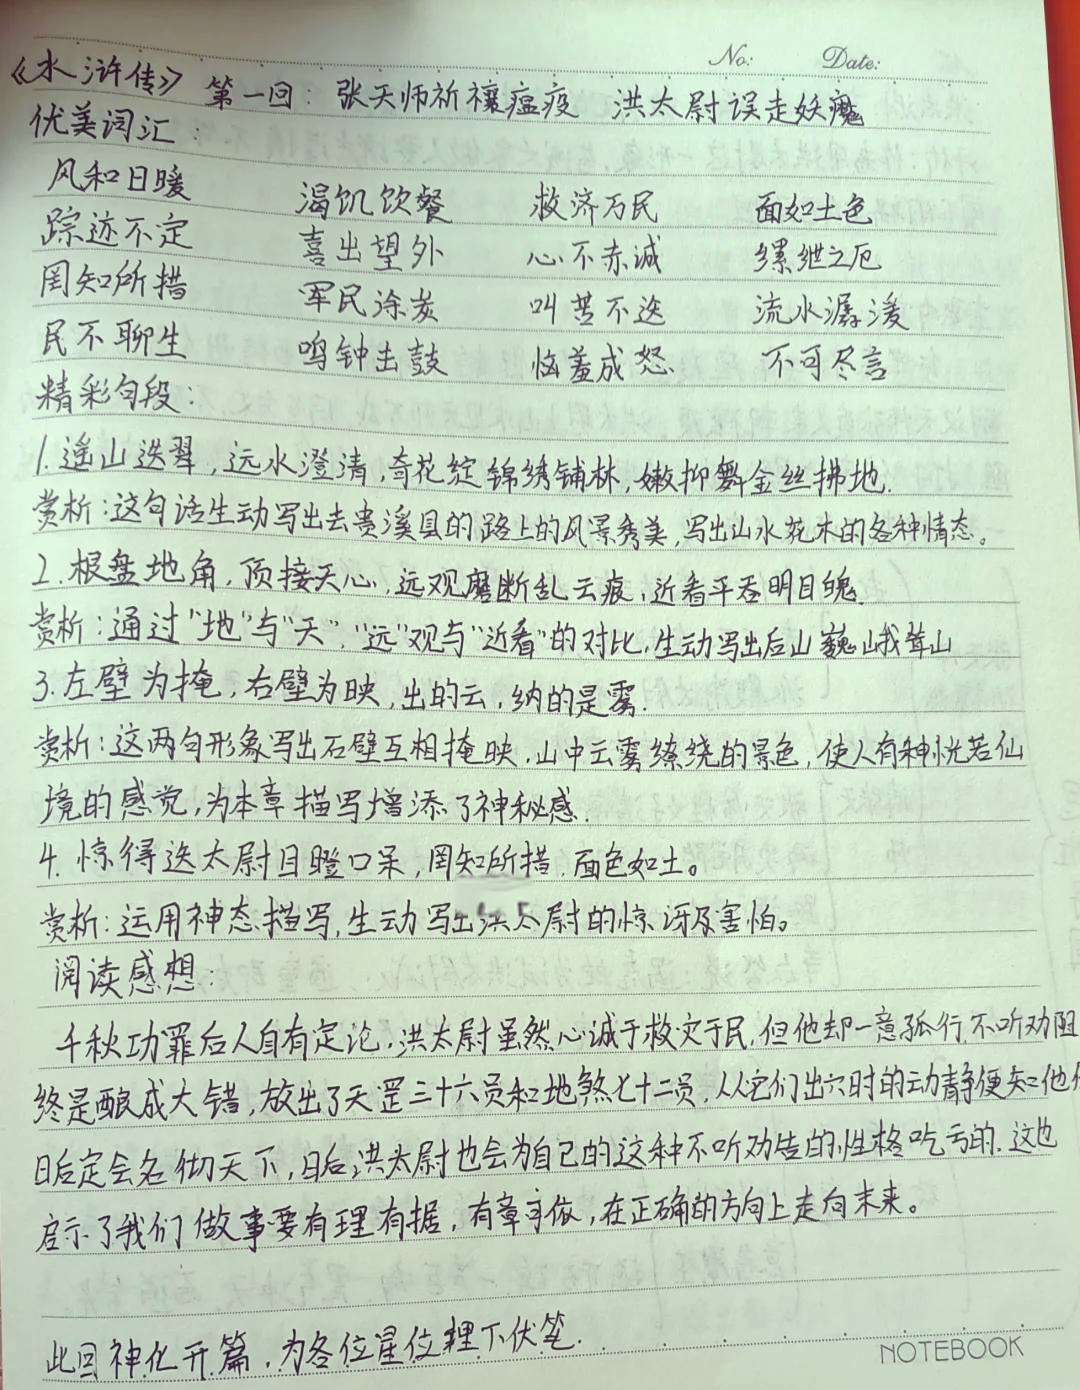 No: Date:
《水浒传》 第一回：张天师祈禳瘟疫 洪太尉误走妖魔
优美词汇：
风和日暖 渴饥饮餐 救济万民 面如土色
踪迹不定 喜出望外 心不赤诚 缧绁之厄
罔知所措 军民涂炭 叫苦不迭 流水潺湲
民不聊生 鸣钟击鼓 恼羞成怒 不可尽言
精彩句段：
1.遥山迭翠，远水澄清，奇花绽锦绣铺林，嫩柳舞金丝拂地.
赏析：这句话生动写出去贵溪县的路上的风景秀美，写出山水花木的各种情态。
2.根盘地角，顶接天心，远观磨断乱云痕，近看平吞明月魄.
赏析：通过"地"与"天"，"远"观与"近看"的对比，生动写出后山巍峨耸山
3.左壁为掩，右壁为映，出的云，纳的是雾.
赏析：这两句形象写出石壁互相掩映，山中云雾缭绕的景色，使人有种恍若仙
境的感觉，为本章描写增添了神秘感.
4.惊得迭太尉目瞪口呆，罔知所措，面色如土。
赏析：运用神态描写，生动写出洪太尉的惊讶及害怕。
阅读感想：
千秋功罪后人自有定论，洪太尉虽然心诚于救灾于民，但他却一意孤行不听劝阻
终是酿成大错，放出了天罡三十六员和地煞七十二员，从它们出穴时的动静便知他们
日后定会名彻天下，日后洪太尉也会为自己的这种不听劝告的性格吃亏的.这也
启示了我们做事要有理有据，有章可依，在正确的方向上走向未来。
此回神化开篇，为各位星位埋下伏笔.
NOTEBOOK